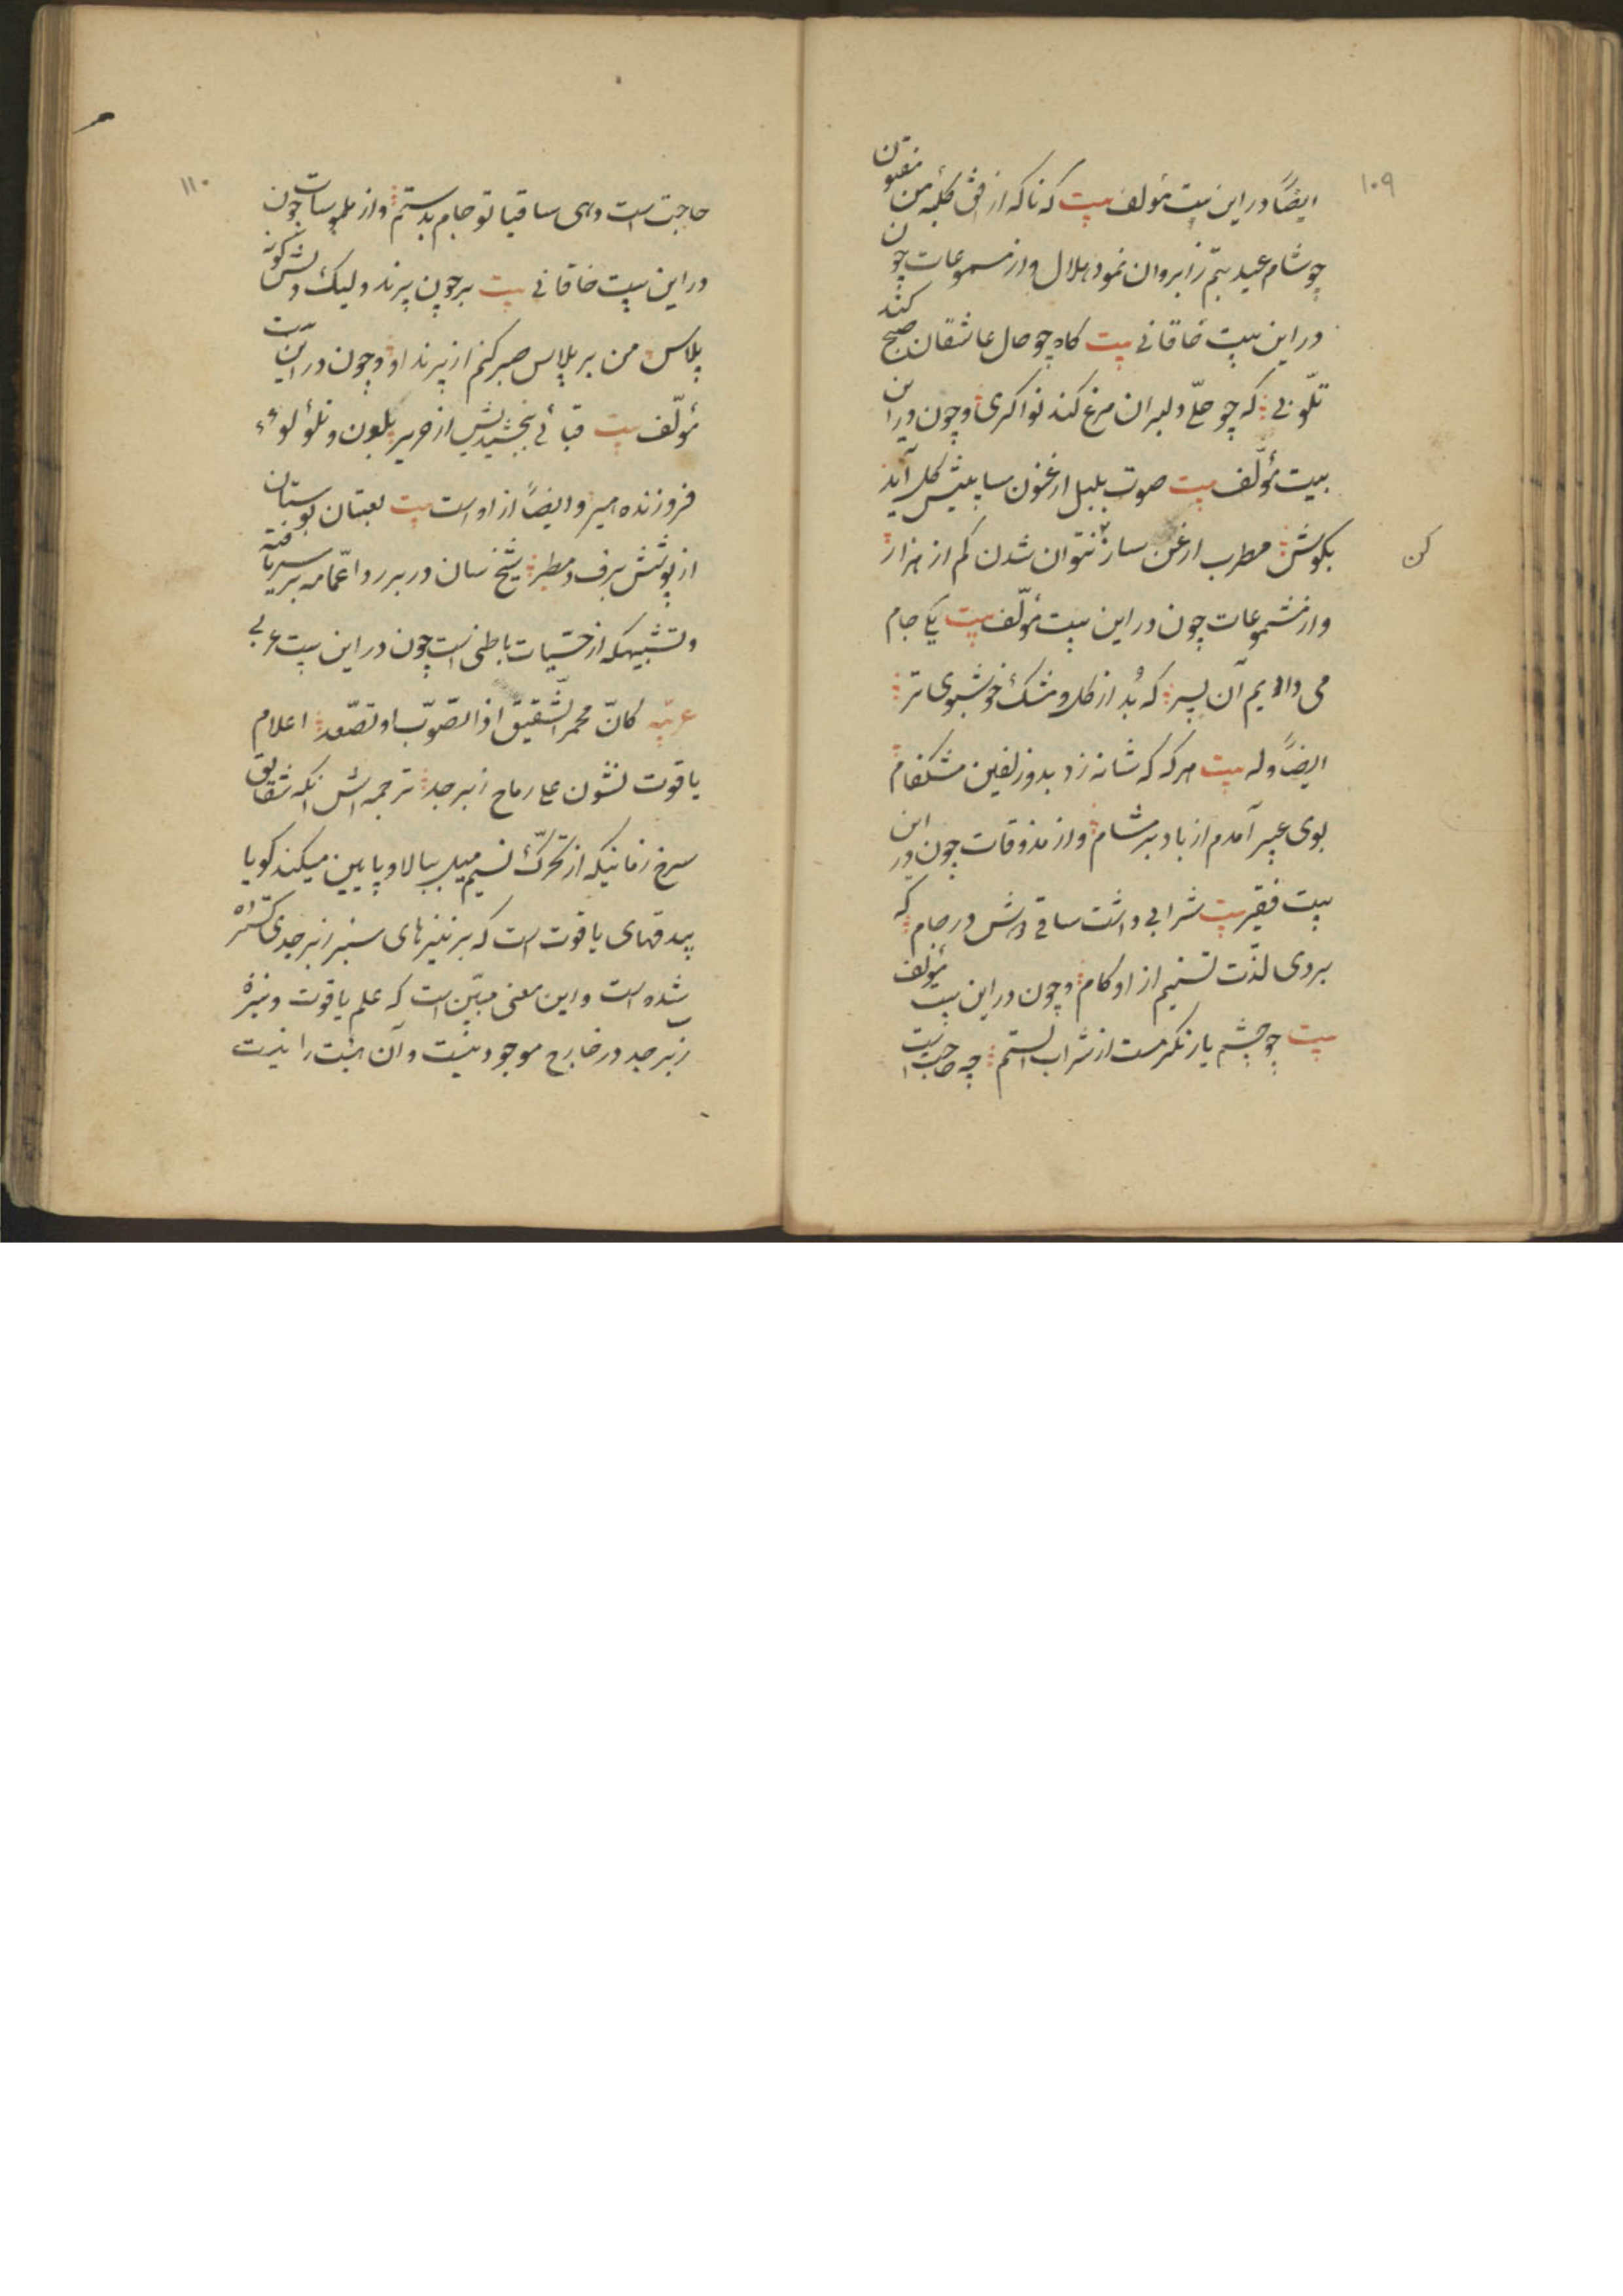 ۱۰۹
ایضاً در این بیت مؤلف بیت که ناکه از افق کلبه من مفتون
چو شام عید بتم ز ابروان نمود هلال و از مسموعات چون
در این بیت خاقانی بیت کاه چو حال عاشقان صبح کند
تلّونی که چو حلّ دلبران مرغ کند نواکری و چون در این
بیت مؤلّف بیت صوت بلبل ارغنون سا پیش کل آید
بکوش مطرب ارغن ساز نتوان شدن کم از هزار
کن
و از مشموعات چون در این بیت مؤلّف بیت یکی جام
می دادیم آن پسر که بُد از کل و مشک خوشبوی تر
ایضاً وله بیت هر که که شانه زد بدو زلفین مشکفام
بوی عبیر آمدم از باد بر مشام و از مذوقات چون در این
بیت فقیر بیت شرابی داشت ساقی دوش در جام که
بردی لذّت تسنیم از او کام و چون در این بیت مؤلف
بیت چو چشم یار نکر مست از شراب الستم چه حاجت است
۱۱۰
حاجت است دهی ساقیا تو جام بدستم و از ملموسات چون
در این بیت خاقانی بیت بر چون پرند و لیک دلش کونه
پلاس من بر پلاس صبر کنم از پرند او و چون در این بیت
مؤلّف بیت قبائی بخشیدیش از حریر بلون و تلؤلؤ
فروزنده میر و ایضاً از اوست بیت لعبتان بوستان
از پوشش برف و مطیر شیخ سان در بر ردا عمّامه بر سر یافته
و تشبیهکه از حسّیات باطنی است چون در این بیت عربی
عربیّه کانّ محمر الشّقیق اذا تصوّب او تصّعد اعلام
یاقوت نشرن علی رماح زبرجد ترجمه اش انکه شقایق
سرخ زمانیکه از تحرّک نسیم میل ببالا و پایین میکند کویا
بیدقهای یاقوت است که بر نیزهای سبز زبرجدی کشیده
شده است و این معنی مبیّن است که علم یاقوت و نیزهٔ
زبرجد در خارج موجود نیست و آن هیئت را بذات